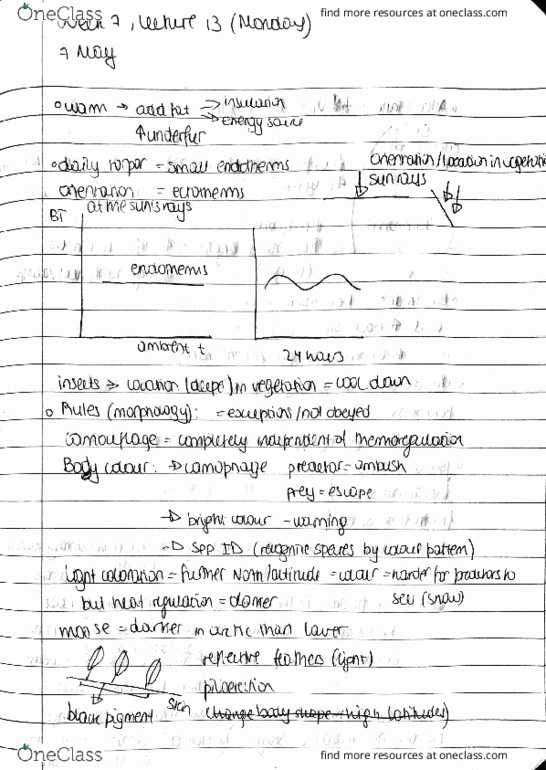 OneClass
find more resources at oneclass.com
Week 7, Lecture 13 (Monday)
7 May
warm → add fat → insulation
→ energy source
↑ underfur
daily torpor = small endotherms
orientation/location in vegetation
orientation = ectotherms
sun rays
at the sun's rays
BT
endotherms
ambient t
24 hours
insects => location (deeper) in vegetation = cool down
Rules (morphology): = exceptions/not obeyed
camouflage = completely independent of thermoregulation
Body colour: → camophage predator = ambush
prey = escape
→ bright colour - warning
→ spp ID (recognise species by colour pattern)
Light coloration = further North/altitude = colour = harder for predators to
see (snow)
but heat regulation = darker
moose = darker in arctic than lower
reflective feathers (light)
piloerection
skin
black pigment
change body shape - high latitudes)
OneClass
find more resources at oneclass.com